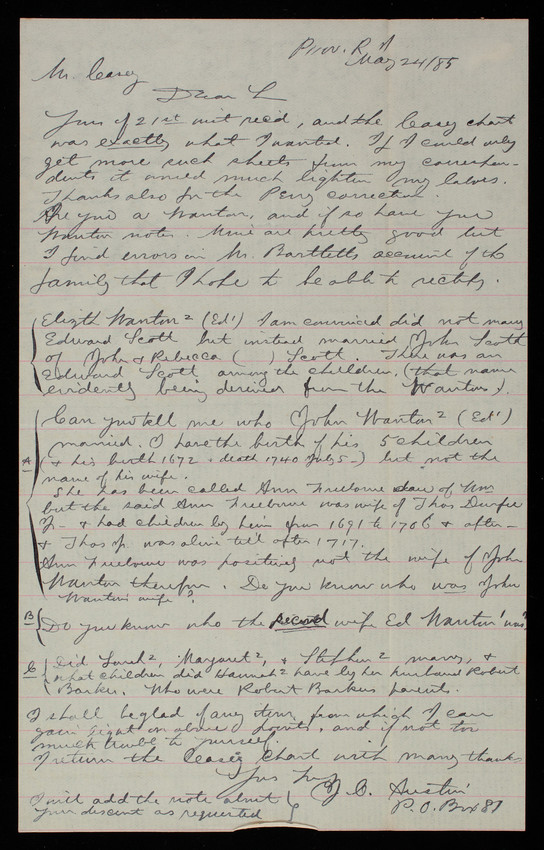 Prov. R.I.
May 24/85
Mr. Casey
Dear Sir
Yours of 21st inst recd, and the Casey chart
was exactly what I wanted. If I could only
get more such sheets from my correspon-
dents it would much lighten my labors.
Thanks also for the Perry correction.
Are you a Wanton, and if so have you
Wanton notes. Mine are pretty good but
I find errors in Mr. Bartletts account of the
family that I hope to be able to rectify.
Elizth Wanton 2 (Ed 1) I am convinced did not marry
Edward Scott but instead married John Scott
of John & Rebecca ( ) Scott. There was an
Edward Scott among the children, (that name
evidently being derived from the Wantons).
A Can you tell me who John Wanton 2 (Ed 1)
married. I have the birth of his 5 children
(& his birth 1672 & death 1740 July 5-) but not the
name of his wife.
She has been called Ann Freeborne dau of Wm
but the said Ann Freeborne was wife of Thos Durfee
Jr - & had children by him from 1691 to 1706 & after -
& Thos Jr. was alive till after 1717.
Ann Freeborne was positively not the wife of John
Wanton therefore. Do you know who was John
Wanton's wife?
B Do you know who the second wife Ed Wanton 1 was?
C Did Sarah 2, Margaret 2, & Stephen 2 marry, &
what children did Hannah 2 have by her husband Robert
Barker. Who were Robert Barkers parents.
I shall be glad of any item from which I can
gain light on above points, and if not too
much trouble to yourself.
I return the Casey chart with many thanks
Yours Truly
J. O. Austin
P.O. Box 81
I will add the note about
your descent as requested